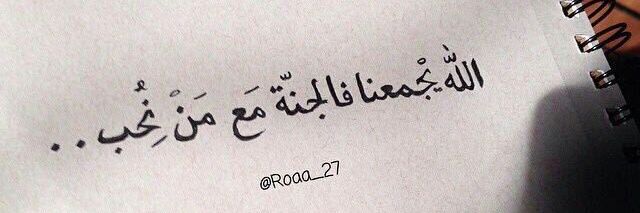 الله يجْمعنا فالجنّة مَع مَنْ نُحِب . .
@Roaa_27